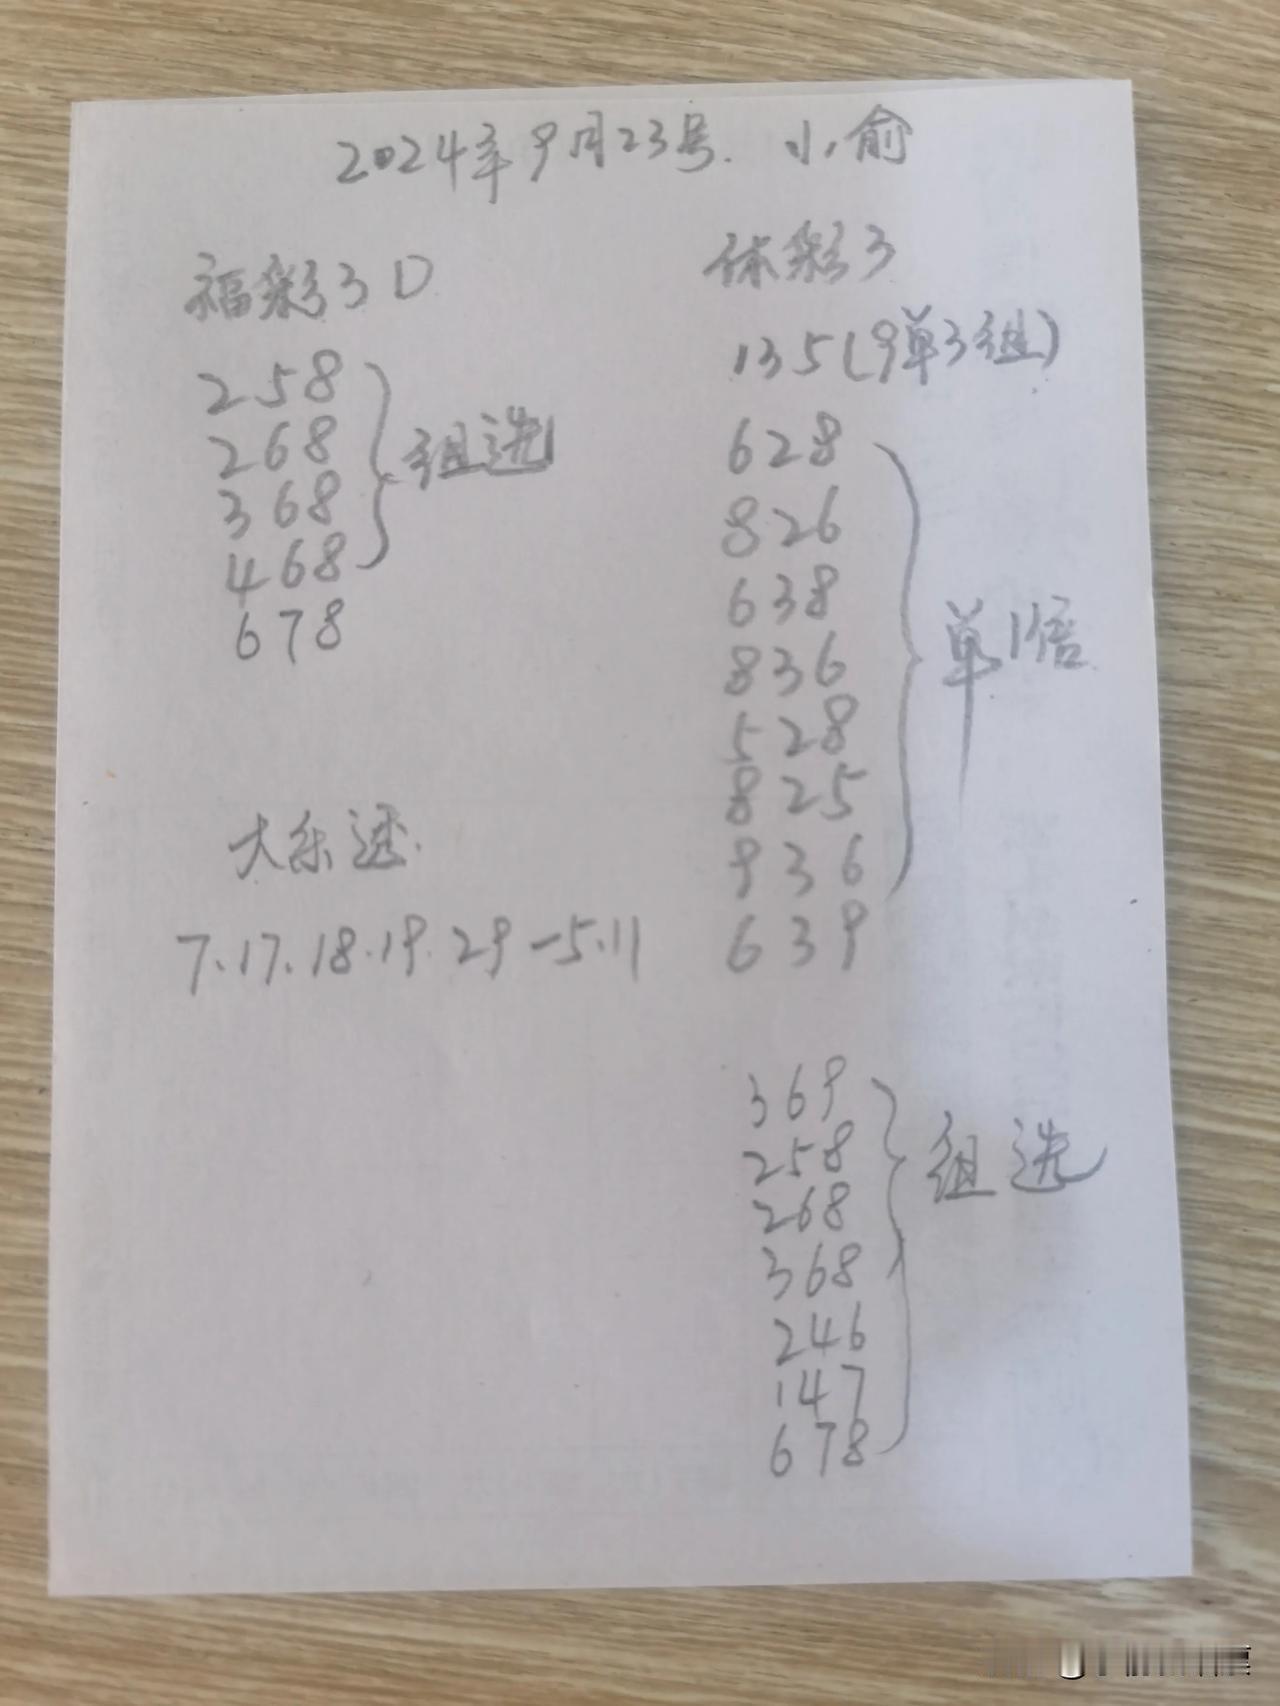 2024年9月23号. 小俞
福彩3D
258
268
368
468
678
组选
大乐透.
7.17.18.19.29-5.11
体彩3
135(9单3组)
628
826
638
836
528
825
936
639
单1倍
369
258
268
368
246
147
678
组选